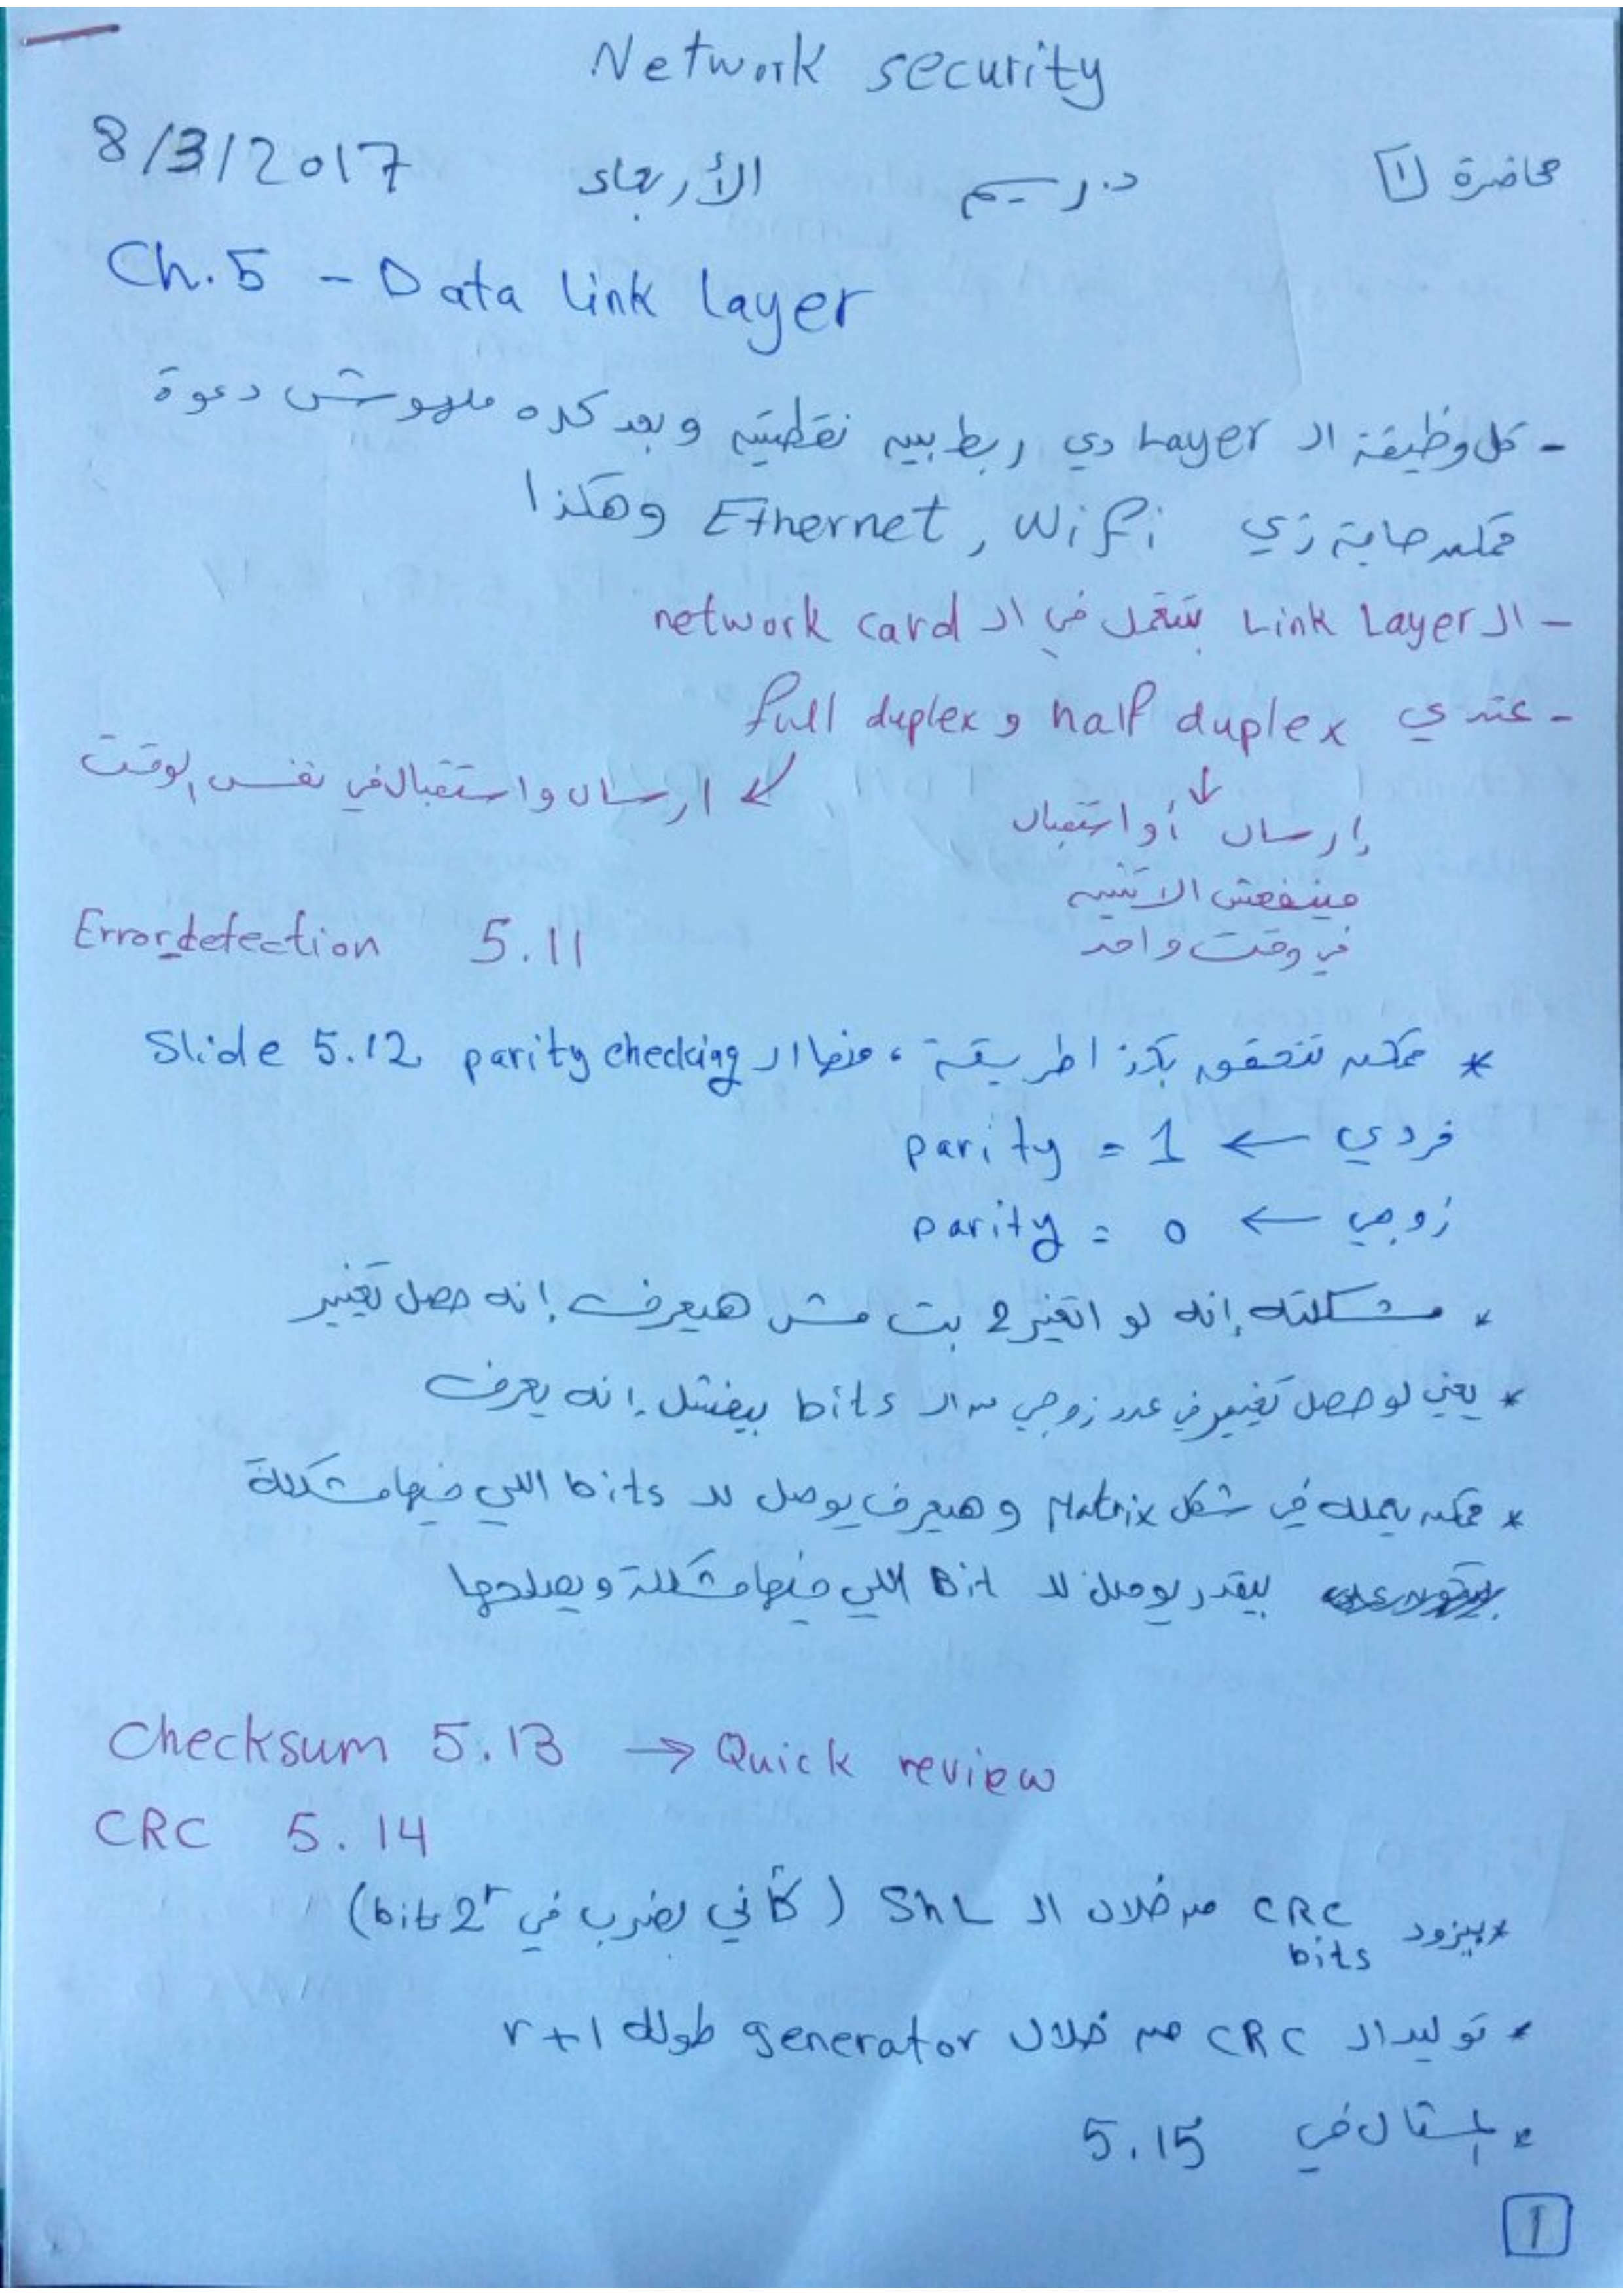 Network security
محاضرة 1 د. ريم الأربعاء 8/3/2017
Ch.5 - Data Link Layer
- كل وظيفة ال Layer دي ربط بين نقطتين وبعد كده ملهوش دعوة
ممكن حاجة زي Ethernet, Wifi وهكذا
- ال Link Layer بتتعمل في ال network card
- عندي half duplex و full duplex
↙ ارسال واستقبال في نفس الوقت
↓
إرسال أو استقبال
مينفعش الاتنين
في وقت واحد
Error detection 5.11
* ممكن نتحقق بكذا طريقة، منها ال parity checking Slide 5.12
فردي ← parity = 1
زوجي ← parity = 0
* مشكلته إنه لو اتغير 2 بت مش هيعرف إنه حصل تغيير
* يعني لو حصل تغيير في عدد زوجي من ال bits بيفشل إنه يعرف
* ممكن يعمله في شكل Matrix وهيعرف يوصل لل bits اللي فيها مشكلة
بيقدر يوصل لل Bit اللي فيها مشكلة ويصلحها
Checksum 5.13 → Quick review
CRC 5.14
* بيزود CRC bits من خلال ال ShL (كأني بضرب في 2^r bits)
* توليد ال CRC من خلال generator طوله r+1
* المثال في 5.15
1